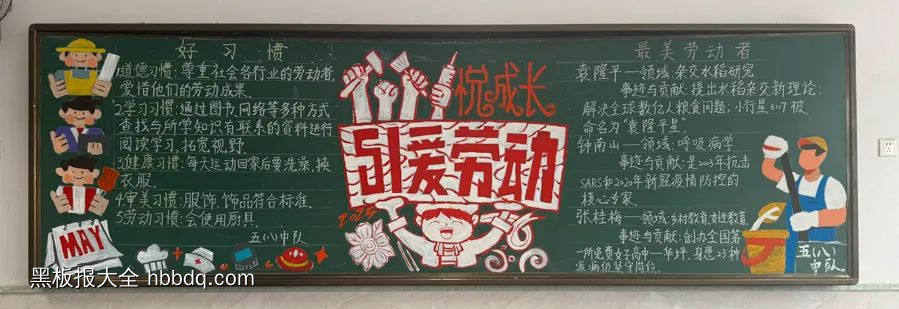 好习惯
1.道德习惯:尊重社会各行业的劳动者,
爱惜他们的劳动成果。
2.学习习惯:通过图书、网络等多种方式
查找与所学知识有联系的资料进行
阅读学习,拓宽视野。
3.健康习惯:每天运动回家后要洗澡、换
衣服。
4.审美习惯:服饰、饰品符合标准。
5.劳动习惯:会使用厨具。
五(八)中队
MAY
悦成长
51爱劳动
2025
最美劳动者
袁隆平——领域:杂交水稻研究
事迹与贡献:提出水稻杂交新理论;
解决全球数亿人粮食问题,小行星8117被
命名为“袁隆平星”
钟南山——领域:呼吸病学
事迹与贡献:是2003年抗击
SARS和2020年新冠疫情防控的
核心专家。
张桂梅——领域:乡村教育,女性教育
事迹与贡献:创办全国第
一所免费女子高中——华坪,身患23种
疾病仍坚守岗位。
五(八)
中队
黑板报大全 hbbdq.com